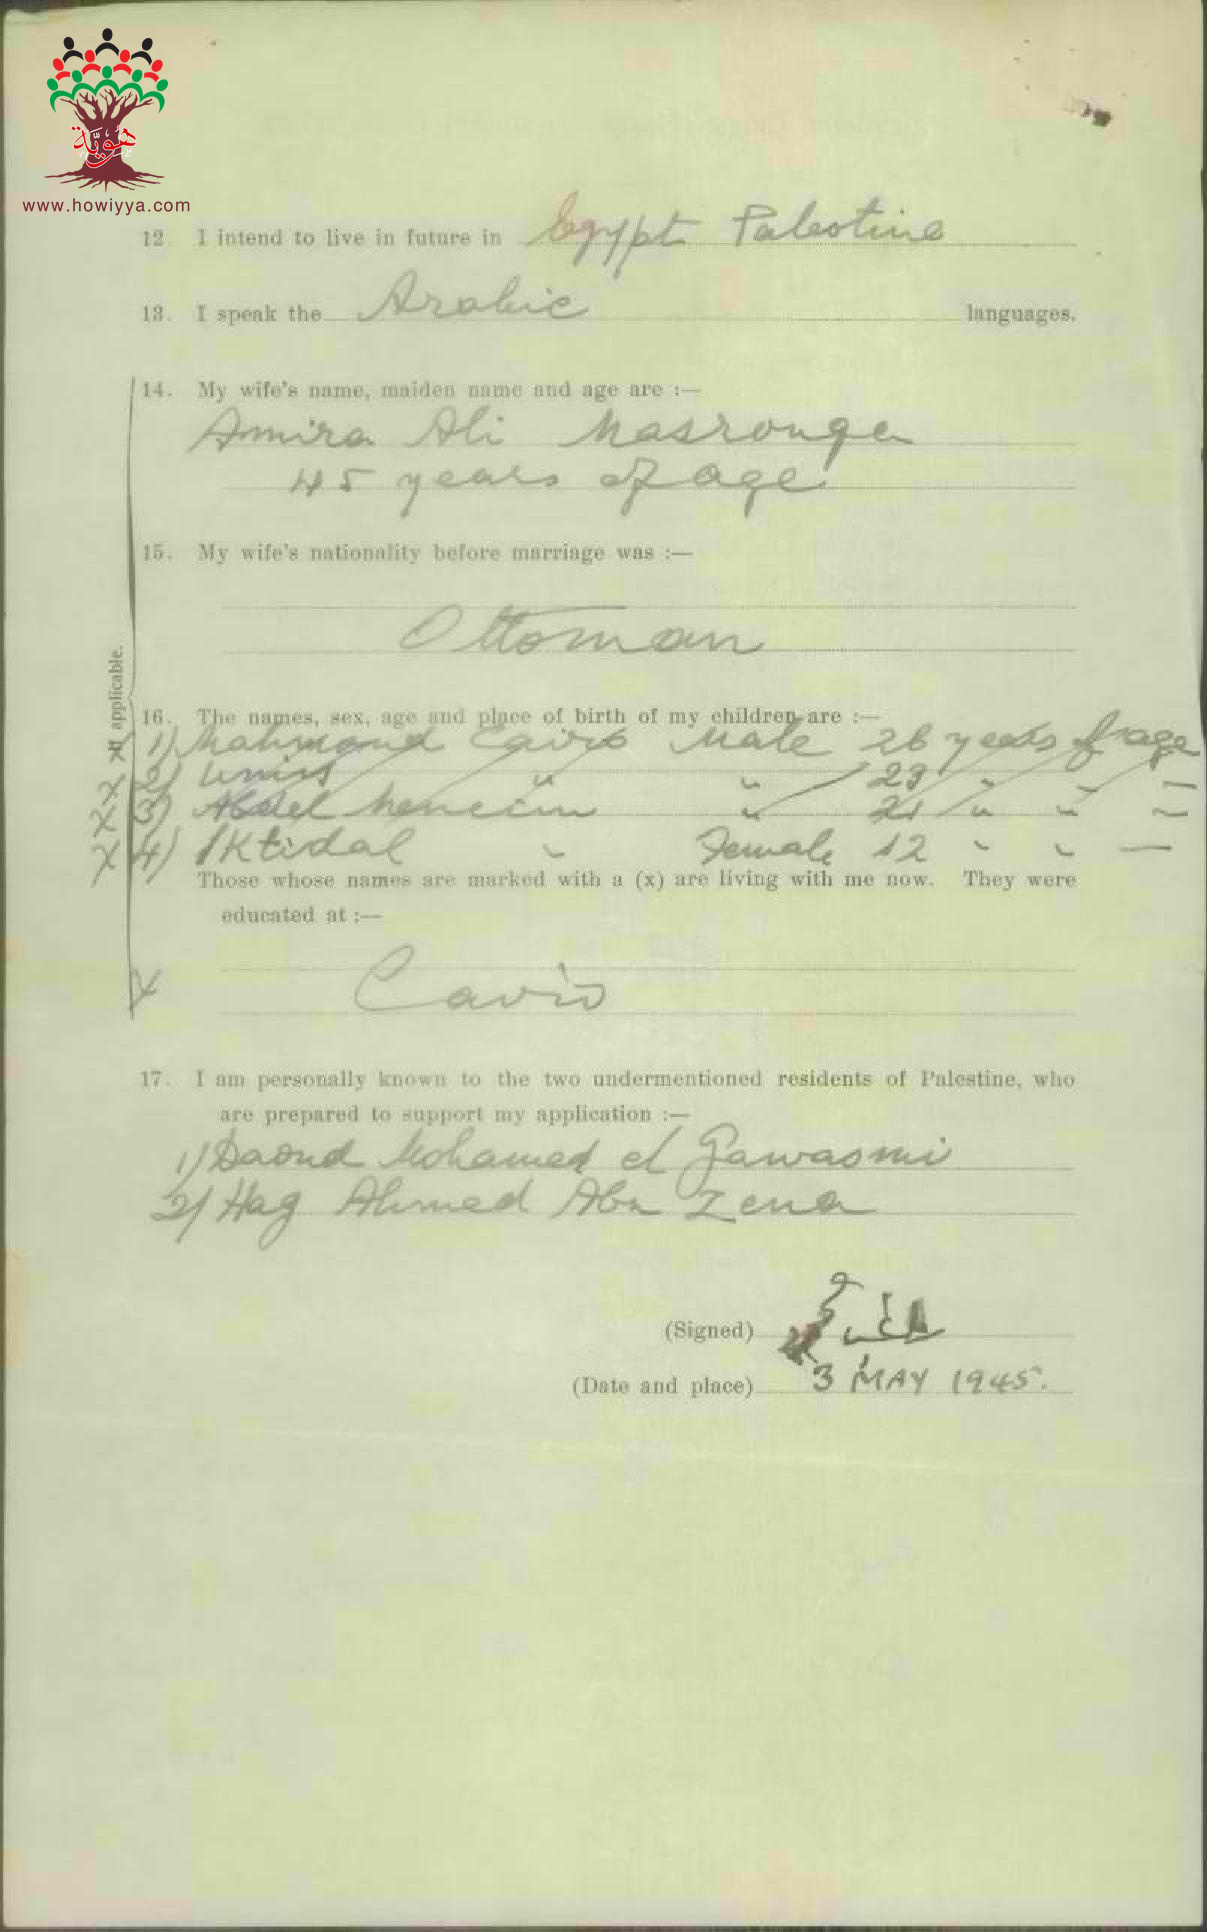 هويّة
www.howiyya.com
12. I intend to live in future in Egypt Palestine
13. I speak the Arabic languages.
14. My wife's name, maiden name and age are :—
Amira Ali Masrouga
45 years of age
15. My wife's nationality before marriage was :—
Ottoman
If applicable.
16. The names, sex, age and place of birth of my children are :—
1) Mahmoud Cairo Male 26 years of age
X 2) Uniss " " 23 " " —
X 3) Abdel Meneim " " 21 " " —
X 4) Iktidal " Female 12 " " —
Those whose names are marked with a (x) are living with me now. They were
educated at :—
X
Cairo
17. I am personally known to the two undermentioned residents of Palestine, who
are prepared to support my application :—
1) Daoud Mohamed el Gawasmi
2) Hag Ahmed Abu Zena
(Signed)
(Date and place) 3 MAY 1945.